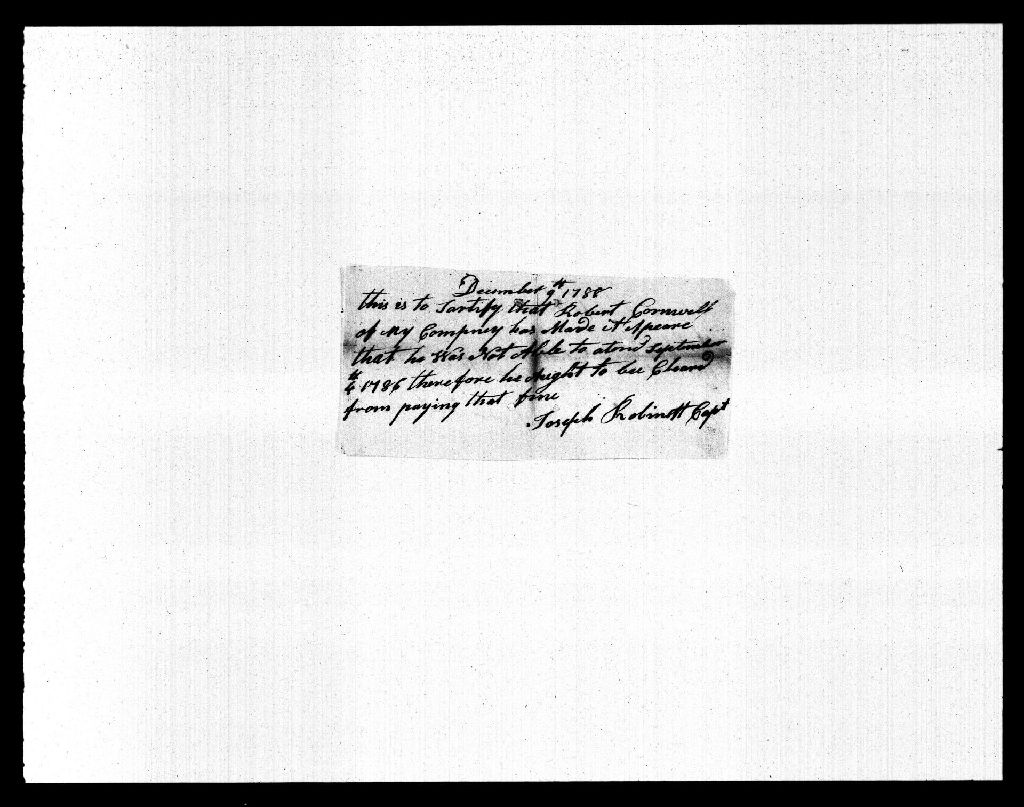 December 9th 1788
this is to Sartify that Robert Cornwell
of My Compney has Made it Apeare
that he Was Not Able to atend September
th
6 1786 therefore he Aught to bee Cleard
from paying that fine
Joseph Robinett Capt